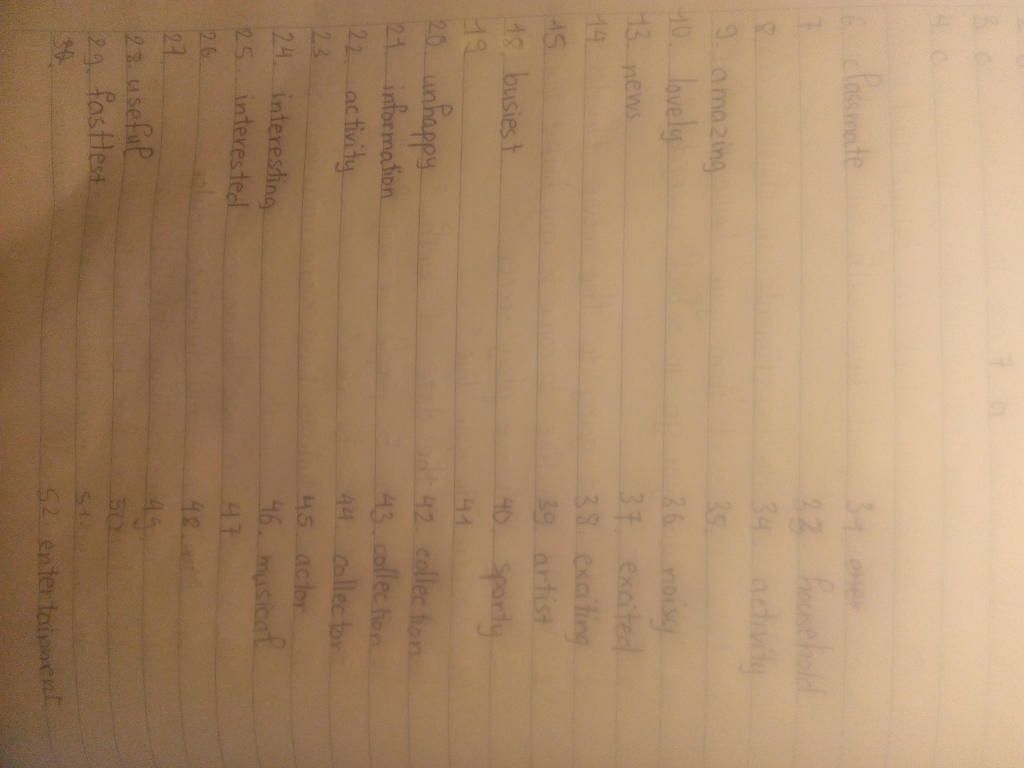 3. c
4. c
7 a
6. classmate
7.
8.
9. amazing
10. lovely
13. news
14.
15.
18. busiest
19
20. unhappy
21. information
22. activity
23
24. interesting
25. interested
26
27.
28. useful
29. fastest
30.
31
33 household
34 activity
35.
36. noisy
37. excited
38. exciting
39 artist
40. sporty
41
42 collection
43. collection
44 collector
45. actor
46. musical
47
48.
49.
50
51.
52. entertainment